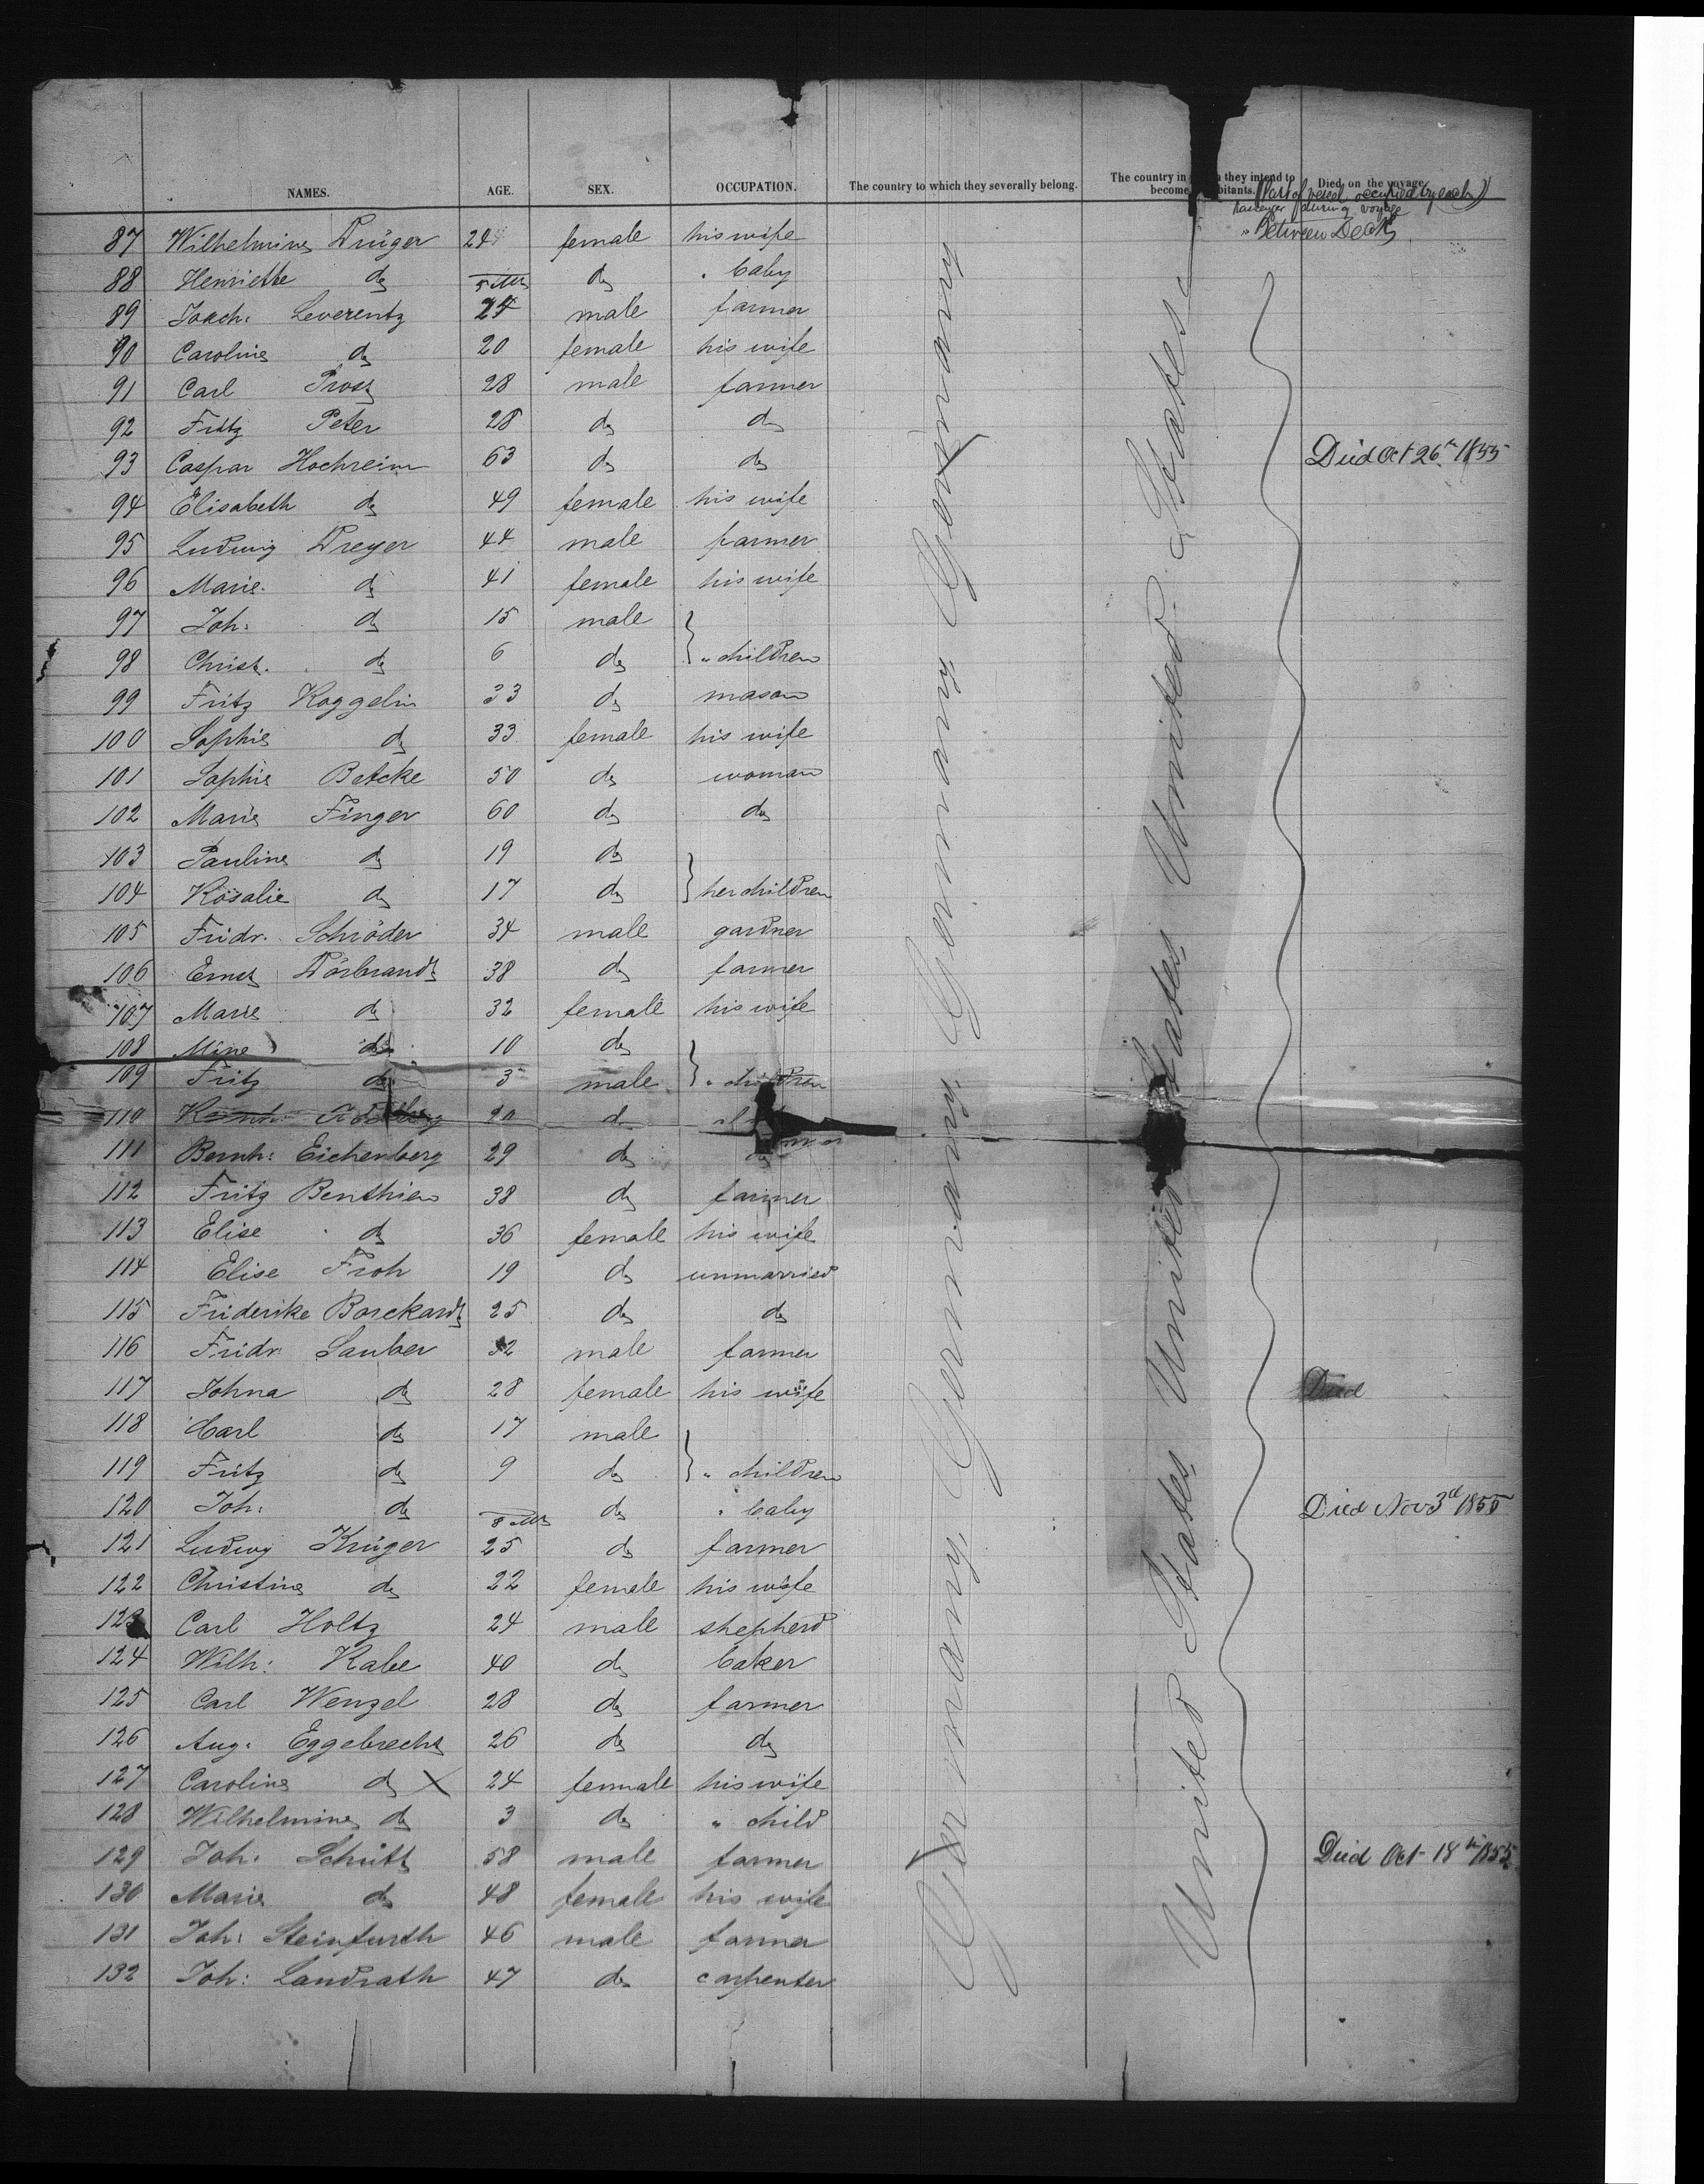 NAMES. AGE. SEX. OCCUPATION. The country to which they severally belong. The country in they intend to become bitants. Died on the voyage.
(Part of vessel occupied by each
passenger during voyage)
"Between Decks
87 Wilhelmine Krüger 24 female his wife
88 Henriette do 5 Ms do " baby
89 Joach: Leverentz 24 male farmer
90 Caroline do 20 female his wife
91 Carl Prosz 28 male farmer
92 Fritz Peter 28 do do
93 Caspar Hochreim 63 do do Died Oct 26th 1855
94 Elisabeth do 49 female his wife
95 Ludwig Dreyer 44 male farmer
96 Marie do 41 female his wife
97 Joh: do 15 male
98 Christ. do 6 do " children
99 Fritz Koggelin 33 do mason
100 Sophie do 33 female his wife
101 Sophie Betcke 50 do woman
102 Marie Finger 60 do do
103 Pauline do 19 do
104 Rosalie do 17 do her children
105 Fridr. Schröder 34 male gardner
106 Ernst Dörbrandt 38 do farmer
107 Marie do 32 female his wife
108 Mine do 10 do
109 Fritz do 3 male " children
110 do
111 Bernh: Eichenberg 29 do do
112 Fritz Benthien 38 do farmer
113 Elise do 36 female his wife
114 Elise Froh 19 do unmarried
115 Friderike Borckardt 25 do do
116 Fridr. Sauber 32 male farmer
117 Johna do 28 female his wife Died
118 Carl do 17 male
119 Fritz do 9 do " children
120 Joh: do 8 Ms do " baby Died Nov 3d 1855
121 Ludwig Krüger 25 do farmer
122 Christine do 22 female his wife
123 Carl Holtz 24 male shepherd
124 Wilh: Kabe 40 do baker
125 Carl Wenzel 28 do farmer
126 Aug. Eggebrecht 26 do do
127 Caroline do X 24 female his wife
128 Wilhelmine do 3 do " child
129 Joh: Schütt 58 male farmer Died Oct 18th 1855
130 Marie do 48 female his wife
131 Joh: Steinfurth 46 male farmer
132 Joh: Landrath 47 do carpenter
Germany, Germany, Germany Germany
United States United States United States